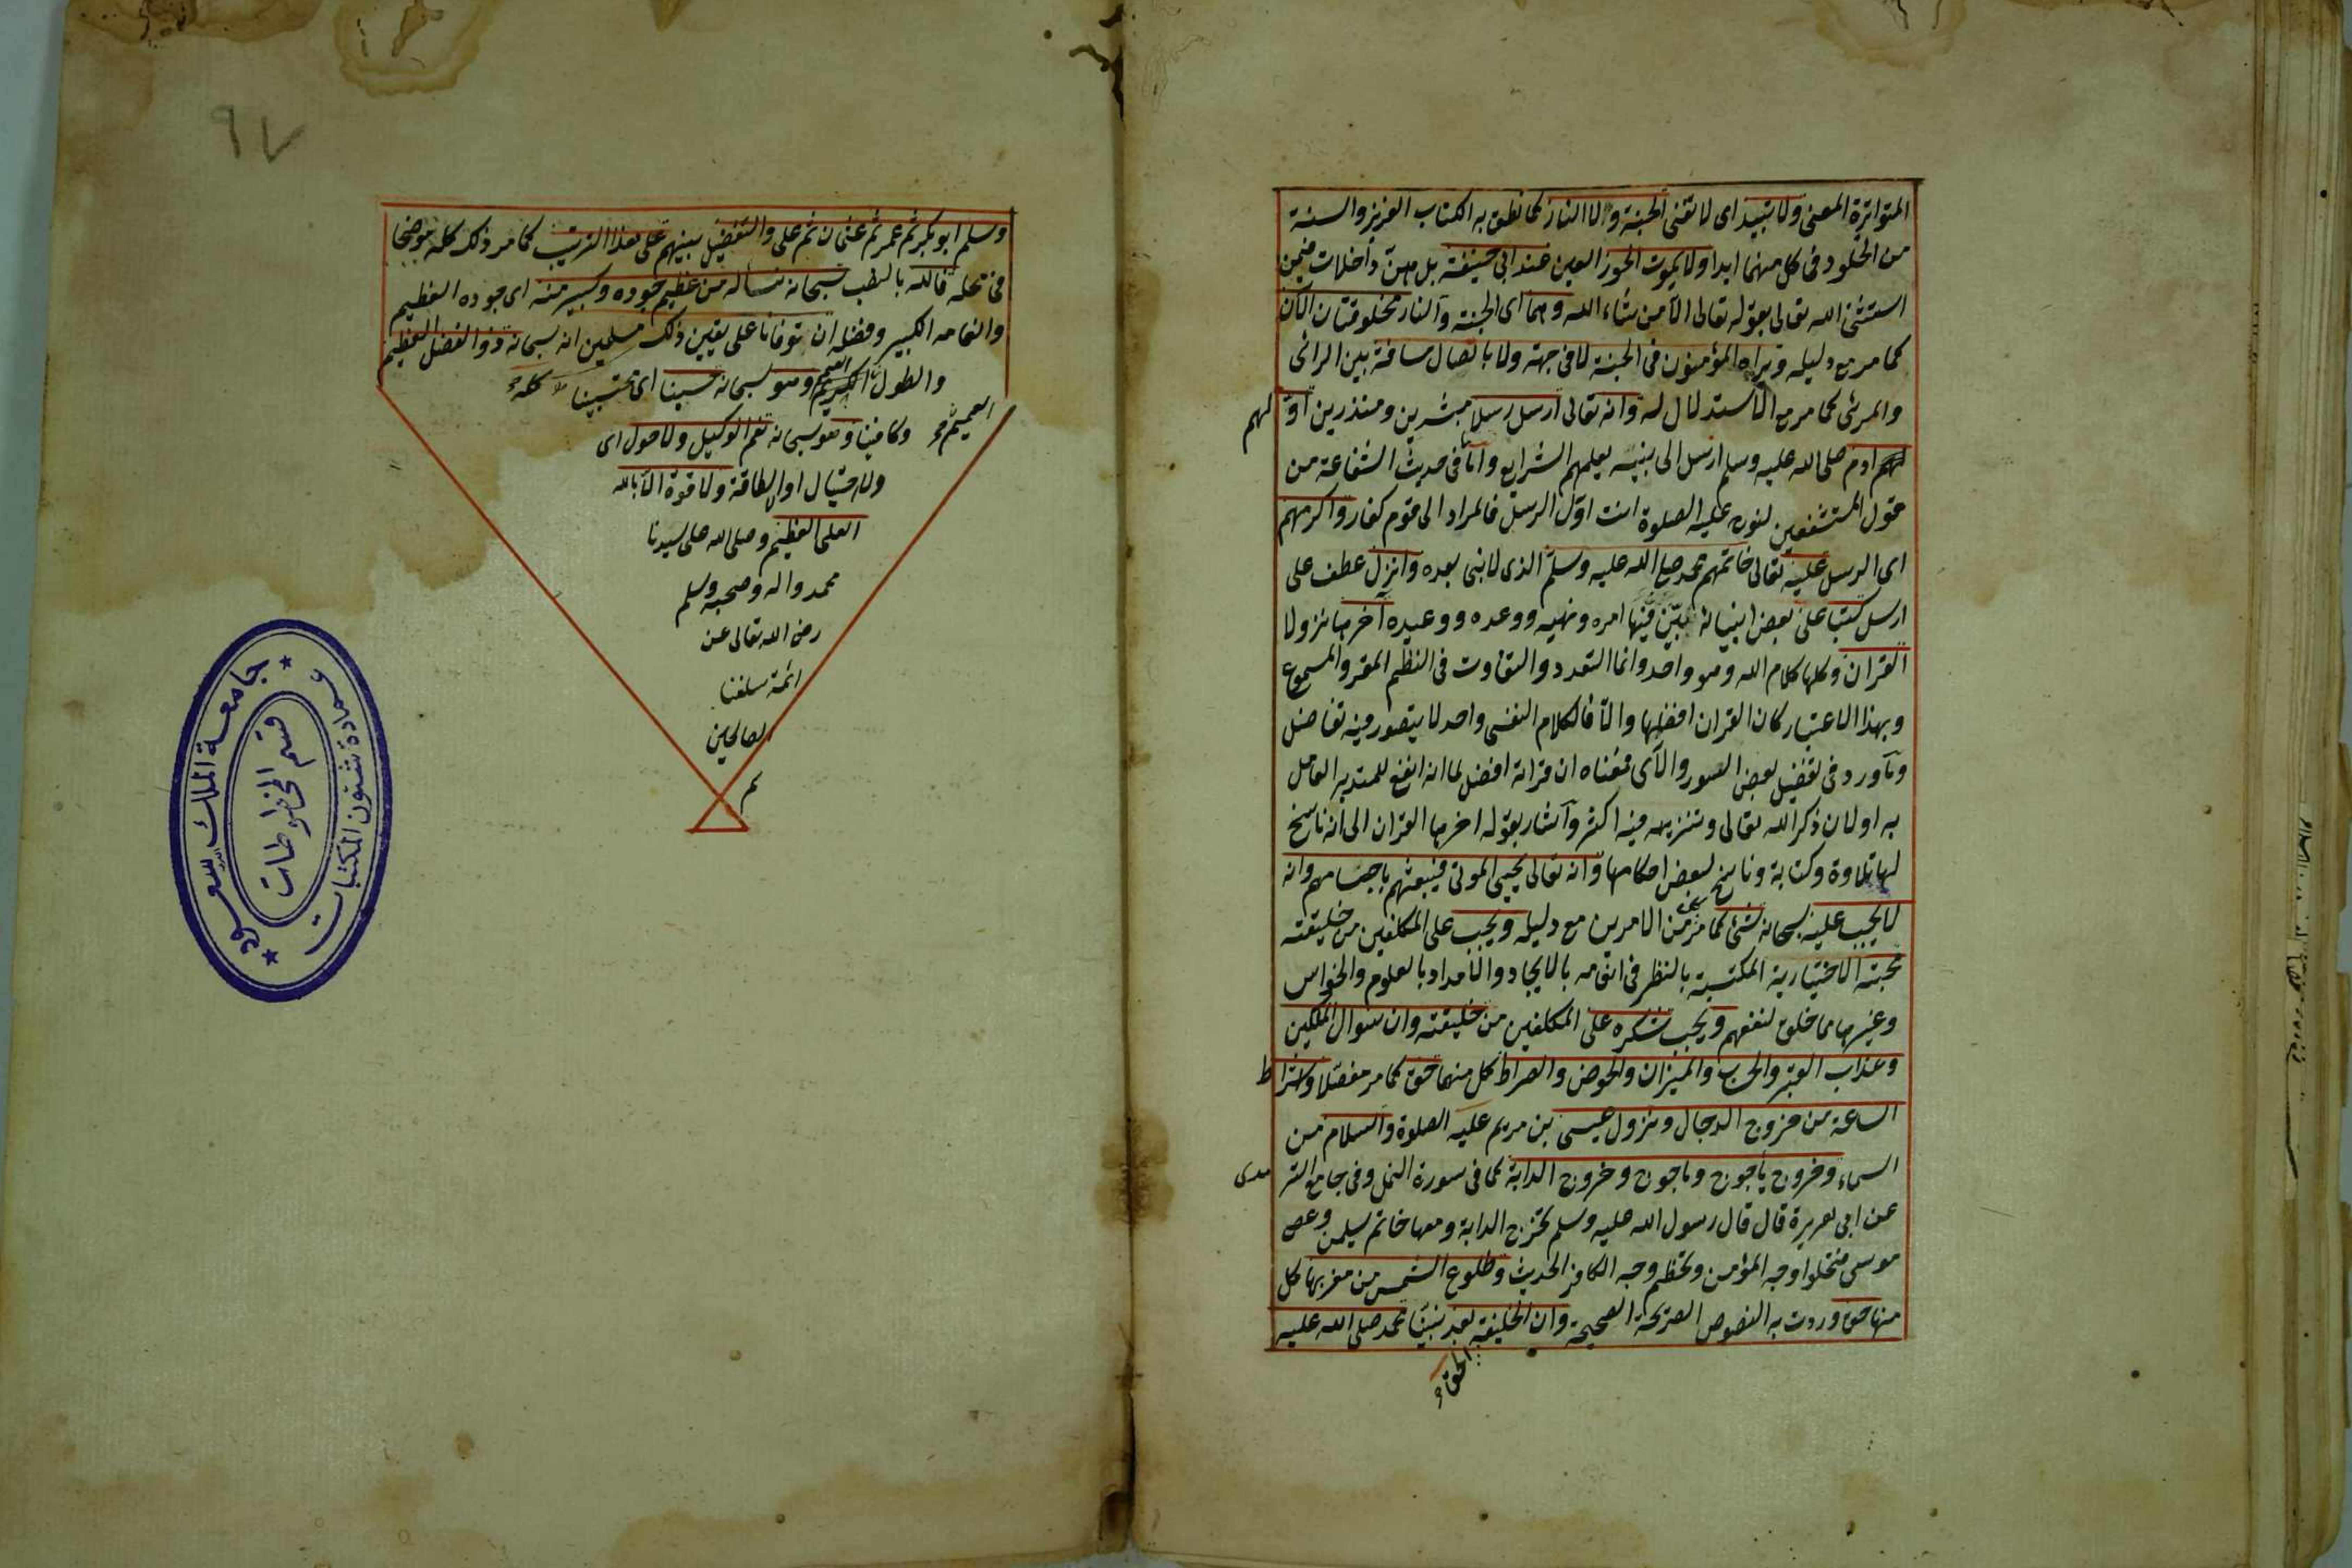 المتواترة المعنى ولا تبيد اى لا تفنى الجنة ولا النار كما نطق به الكتاب العزيز والسنة
من الخلود فى كل منهما ابدا ولا يموت الحور العين عند ابى حنيفة بل هن داخلات فيمن
استثنى الله تعالى بقوله تعالى الا من شاء الله وهما اى الجنة والنار مخلوقتان الان
كما مر مع دليله ويراه المؤمنون فى الجنة لا فى جهة ولا باتصال مسافة بين الرائى
والمرئى كما مر مع الاستدلال له وانه تعالى ارسل رسلا مبشرين ومنذرين اولهم
ادم صلى الله عليه وسلم ارسل الى بنيه يعلمهم الشرايع واما ما فى حديث الشفاعة من
قول المستشفعين لنوح عليه الصلوة انت اول الرسل فالمراد الى قوم كفار واكرمهم
اى الرسل عليه تعالى خاتمهم محمد صلى الله عليه وسلم الذى لا نبى بعده وانزل عطف على
ارسل كتبا على بعض انبيائه بين فيها امره ونهيه ووعده ووعيده اخرها نزولا
القران وكلها كلام الله وهو واحد وانما التعدد والتفاوت فى النظم المقرو المسموع
وبهذا الاعتبار كان القران افضلها والا فالكلام النفسى واحد لا يتصور فيه تفاضل
وما ورد فى تفضيل بعض السور والآى فمعناه ان قراته افضل لما انه انفع للمتدبر العامل
به اولان ذكر الله تعالى وتنزيهه فيه اكثر واشار بقوله اخرها القران الى انه ناسخ
لها تلاوة وكتابة وناسخ لبعض احكامها وانه تعالى يحيى الموتى فيبعثهم باجسامهم وانه
لا يجب عليه سبحانه شئ كما مر من الامرين مع دليله ويجب على المكلفين من خليقته
محبته الاختيارية المكتسبة بالنظر فى انعامه بالايجاد والامداد بالعلوم والحواس
وغيرها مما خلق لنفعهم ويجب شكره على المكلفين من خليقته وان سوال الملكين
وعذاب القبر والميزان والحوض والصراط كل منهما حق كما مر مفصلا واشراط
الساعة من خروج الدجال ونزول عيسى بن مريم عليه الصلوة والسلام من
السماء وخروج ياجوج وماجوج وخروج الدابة كما فى سورة النمل وفى جامع الترمدى
عن ابى هريرة قال قال رسول الله عليه وسلم تخرج الدابة ومعها خاتم سليمن وعصى
موسى فتجلوا وجه المؤمن وتخطم وجه الكافر الحديث وطلوع الشمس من مغربها كل
منها حق وردت به النصوص الصريحة الصحيحة وان الخليفة بعد نبينا محمد صلى الله عليه
الحق
٩٧
وسلم ابو بكر ثم عمر ثم عثمان ثم على والتفضيل بينهم على هذا الترتيب كما مر ذلك كله موضحا
فى محله فالله سبحانه نساله من عظيم جوده وكبير منه اى جوده العظيم
وانعامه الكبير وفضله ان يتوفانا على يقين ذلك مسلمين انه سبحانه ذو الفضل العظيم
والطول الكريم وهو سبحانه حسبنا اى محسبنا
العميم
وكافينا وهو سبحانه نعم الوكيل ولا حول اى
ولا احتيال او لا طاقة ولا قوة الا بالله
العلى العظيم وصلى الله على سيدنا
محمد واله وصحبه وسلم
رضى الله تعالى عن
ائمة سلفنا
الصالحين
م
جامعة الملك سعود
قسم المخطوطات
عمادة شئون المكتبات